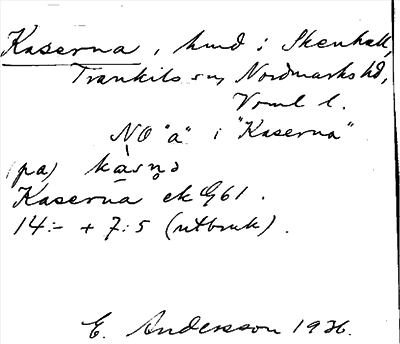 Kaserna, hmd i Skenhall,
Trankils sn, Nordmarks hd,
Vrml l.
NO "a" i "Kaserna"
(på) kàsṇa
Kaserna ek G61.
14:- + 7:5 (utbruk).
E. Andersson 1936.